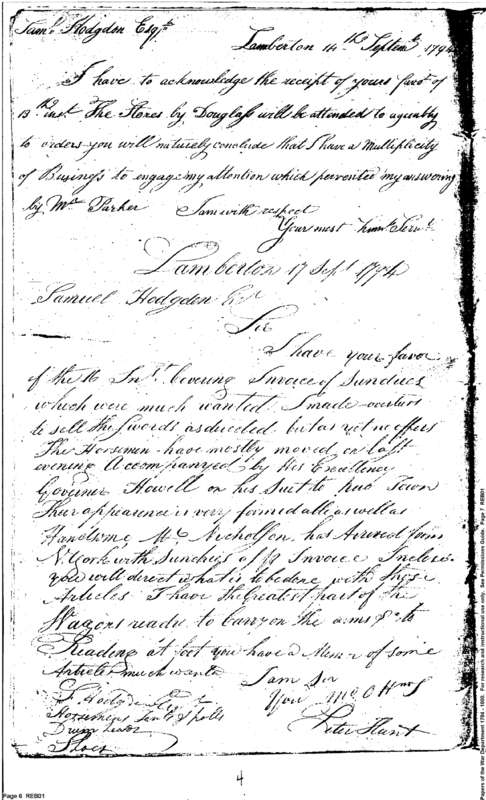 Saml. Hodgdon Esqr.
Lamberton 14th Septemr. 1794
I have to acknowledge the receipt of yours favr. of
13th inst. The Stores by Douglass will be attended to aguably
to orders you will naturely conclude that I have a Multiplicity
of Business to engage my attention which perventee my answering
by Mr. Parker I am with respect
Your most Humle. Servt.
Lamberton 17 Sept 1794
Samuel Hodgdon Esqr
Sir
I have your favor
of the 16 Inst. Covering Invoice of Sundries
which were much wanted I made overturs
to sell the swords as directed but as yet no offers
The Horsemen have mostly moved on last
evening Accompanyed by His Excellency
Governer Howell on his Suit to New Town
Thur appearence is very formidable as well as
Handsome, Mr. Nicholson has Arrived form
N. York with Sundreis as pr. Invoice Inclos.
you will direct what is to be done with these
Articles I have the Greatest part of the
Wagons ready to carry on the arms &c. to
Reading at foot you have a Memr. of some
Articles much wanted
I am Sir
Your Mo. O Hum S
S. Hodgdon Esqr
Horsemens Tents & Polls
Drum heads
Shoes
Peter Hunt
4
Page 6 REB01
Papers of the War Department 1784 - 1800. For research and instructional use only. See Permissions Guide. Page 7 REB01